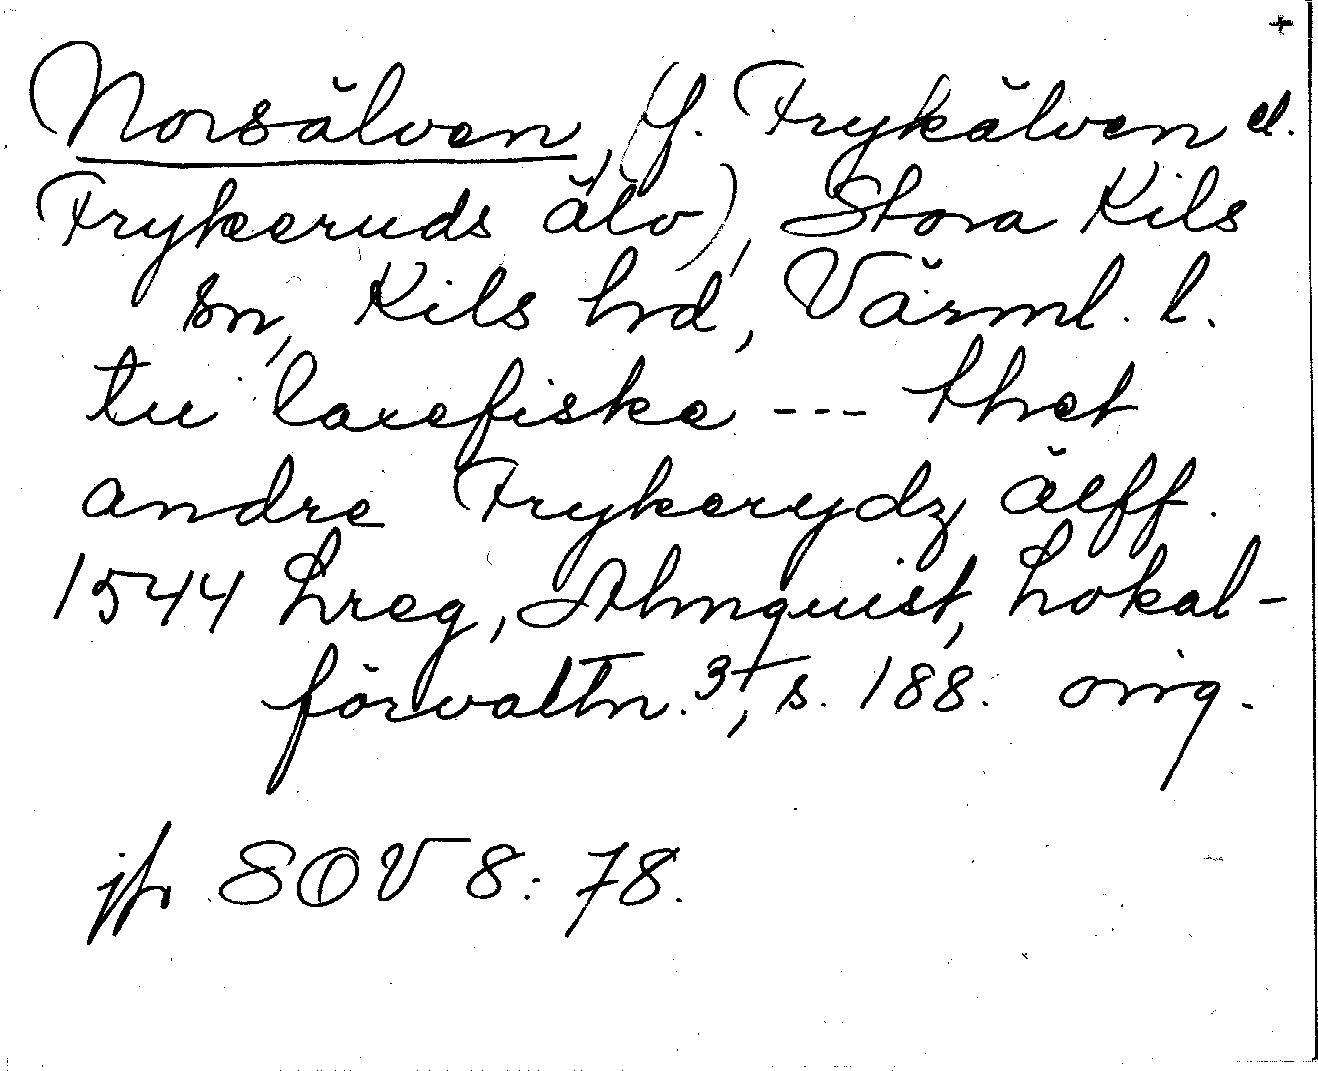 +
Norsälven, (f. Frykälven el.
Frykeruds älv), Stora Kils
sn, Kils hrd, Värml. l.
tu laxefiske --- thet
andre Frykerydz älff.
1544 Lreg, Almquist, Lokal-
förvaltn. 3, s. 188. orig.
jfr SOV 8: 78.